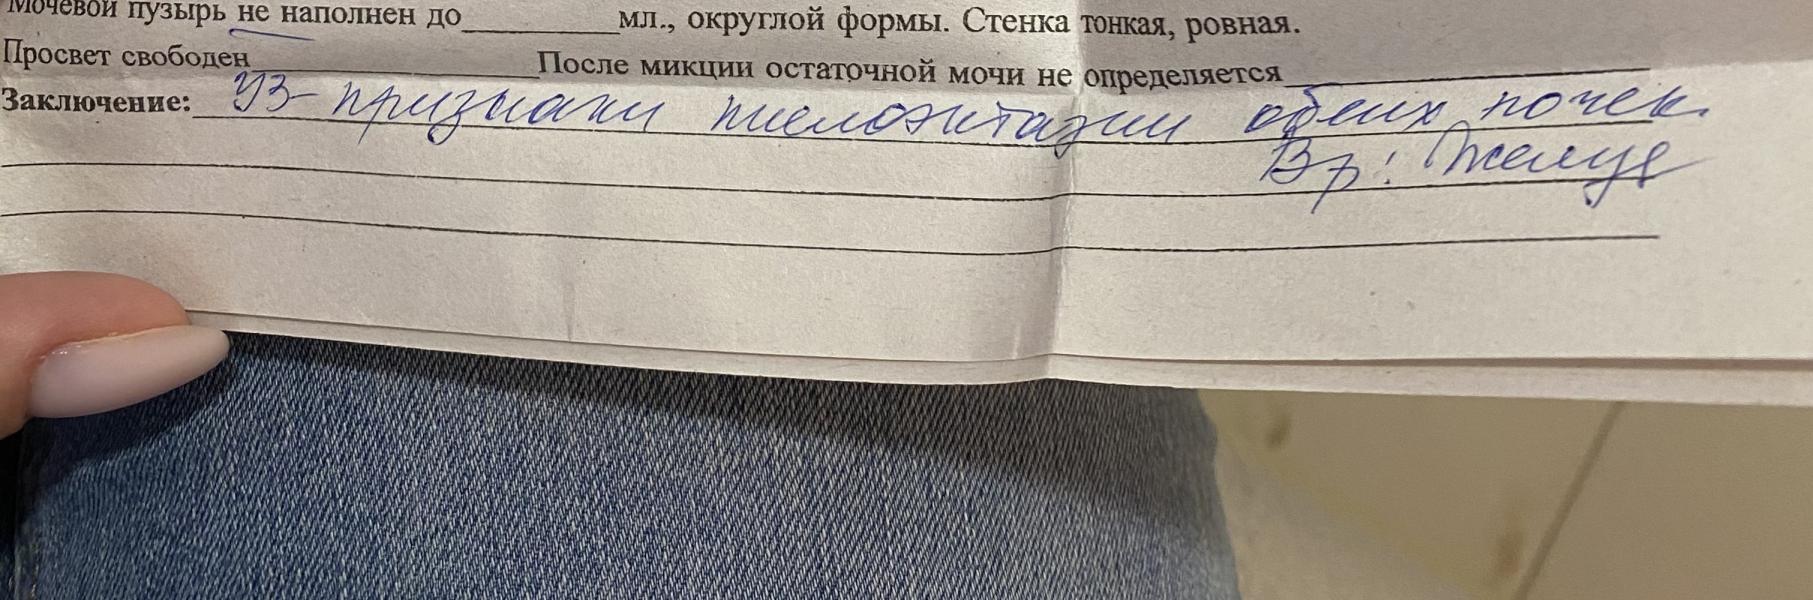 Мочевой пузырь не наполнен до________мл., округлой формы. Стенка тонкая, ровная.
Просвет свободен________________После микции остаточной мочи не определяется________________
Заключение: УЗ-признаки пиелоэктазии обеих почек.
Вр: